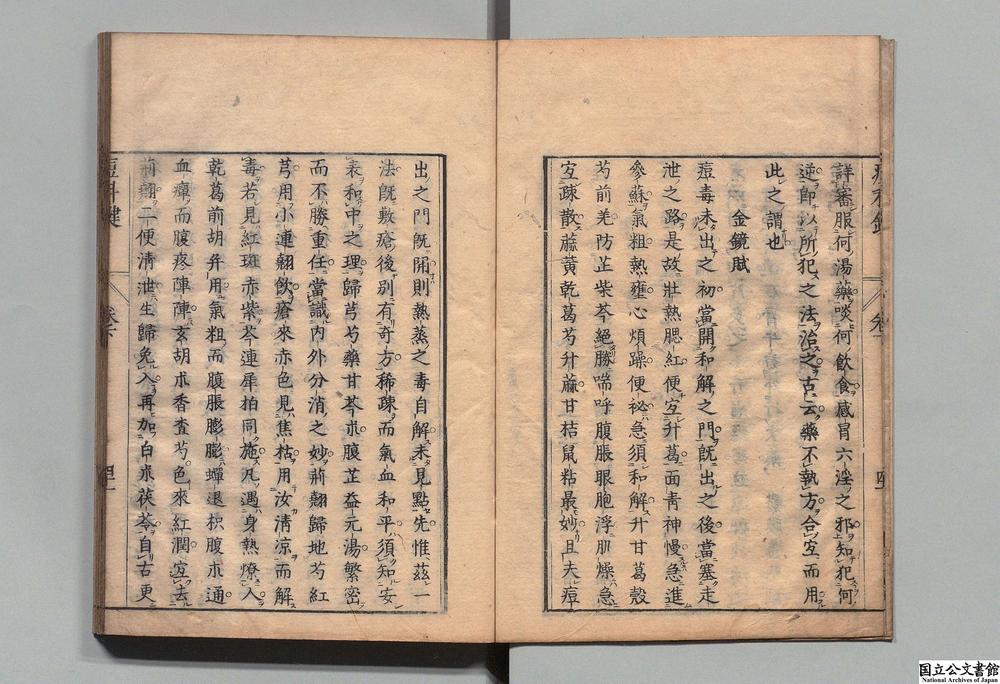 詳審服何湯藥啖何飲食感冒六淫之邪知犯何
逆即以所犯之法治之古云藥不執方合宜而用
此之謂也
金鏡賦
痘毒未出之初當開和解之門既出之後當塞走
泄之路是故壯熱腮紅便宜升葛面青神慢急進
參蘇氣粗熱壅心煩躁便祕急須和解升甘葛殼
芍前羌防芷柴芩絕勝喘呼腹脹眼胞浮肌燥急
宜疎散蔴黄乾葛芍升蔴甘桔鼠粘最妙且夫痘
出之門既開則熱蒸之毒自解未見點先惟茲一
法既敷瘡後別有奇方稀疎而氣血和平須知安
表和中之理歸芎芍藥甘芩朮腹芷益元湯繁密
而不勝重任當識内外分消之妙荊翹歸地芍紅
芎用小連翹飲瘡來赤色見焦枯用汝清涼而解
毒若見紅斑赤紫芩連犀拍同施凡遇身熱燎人
乾葛前胡并用氣粗而腹脹膨膨蟬退枳腹朮通
血瘴而腹疼陣陣玄胡朮香查芍色來紅潤宜去
荊翹二便清泄生歸免入再加白朮茯苓自古更
痘科鍵
卷下
国立公文書館
National Archives of Japan